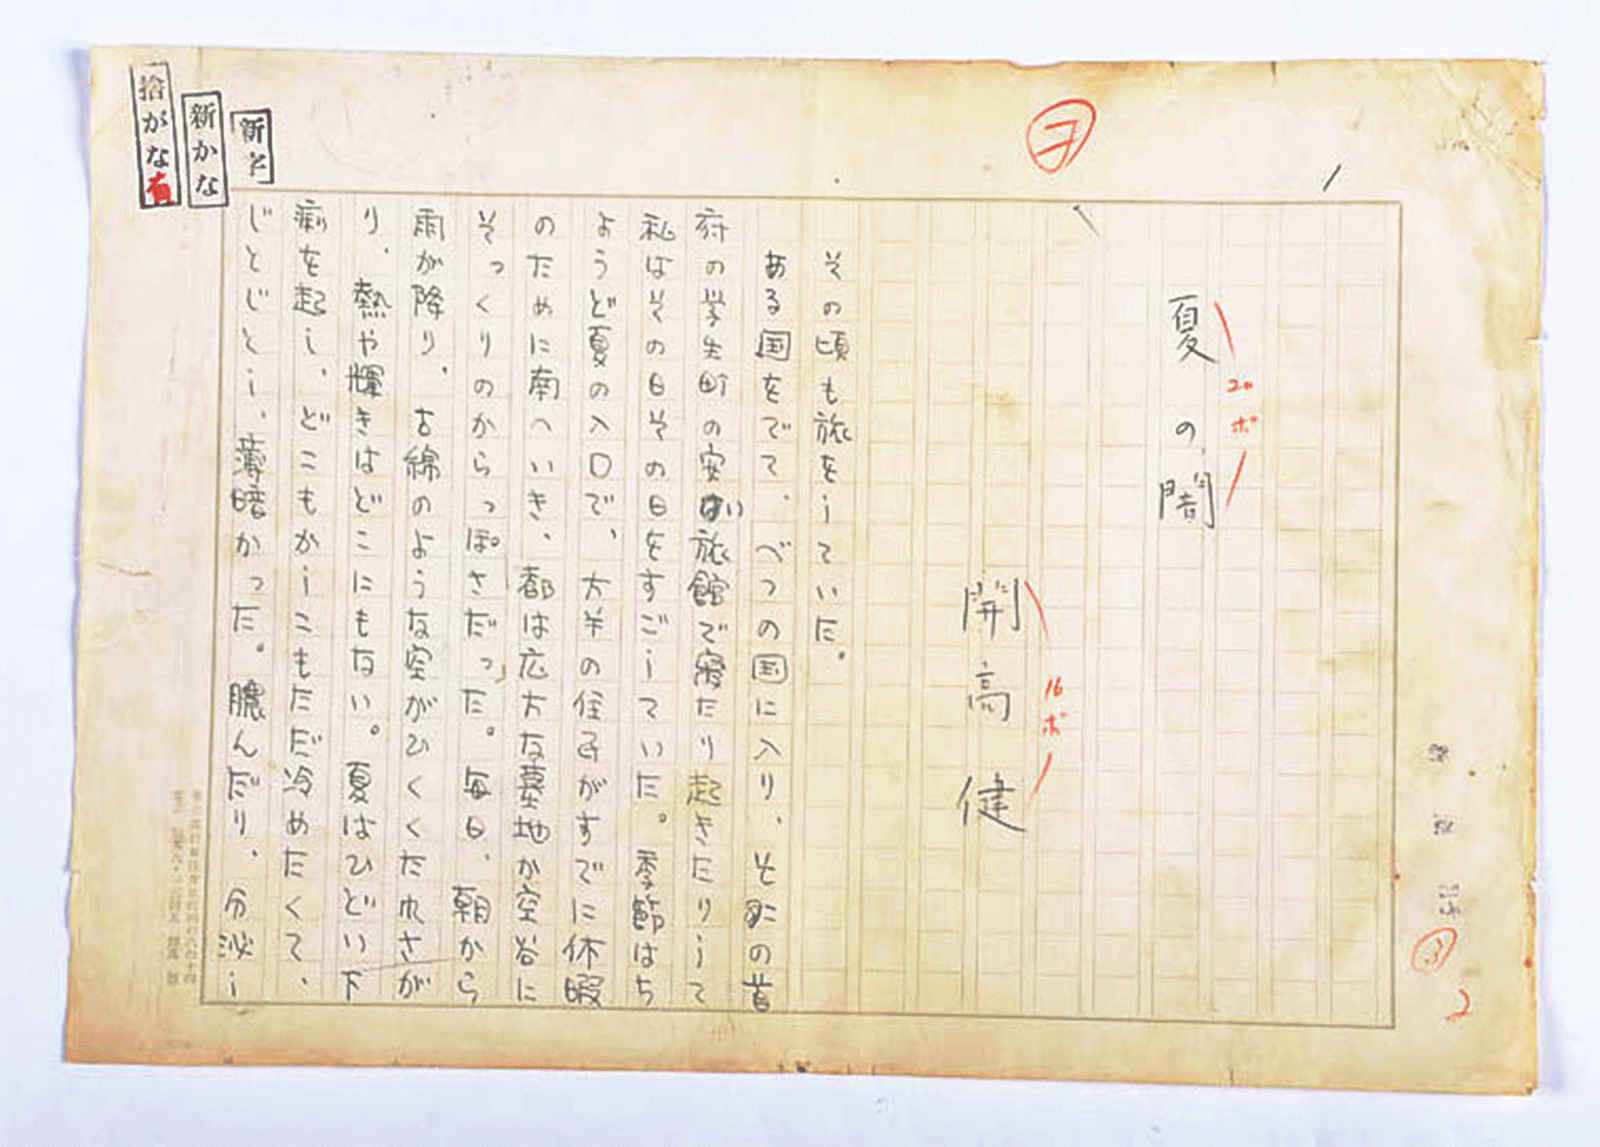 1
夏の闇
20ポ
開高健
16ポ
その頃も旅をしていた。
ある国をでて、べつの国に入り、その首
府の学生町の安い旅館で寝たり起きたりして
私はその日その日をすごしていた。季節はち
ょうど夏の入口で、大半の住民がすでに休暇
のために南へいき、都は広大な墓地か空谷に
そっくりのからっぽさだった。毎日、朝から
雨が降り、古綿のような空がひくくたれさが
り、熱や輝きはどこにもない。夏はひどい下
痢を起し、どこもかしこもただ冷めたくて、
じとじとし、薄暗かった。膿んだり、分泌し
新字
新かな
捨がな有
3
2